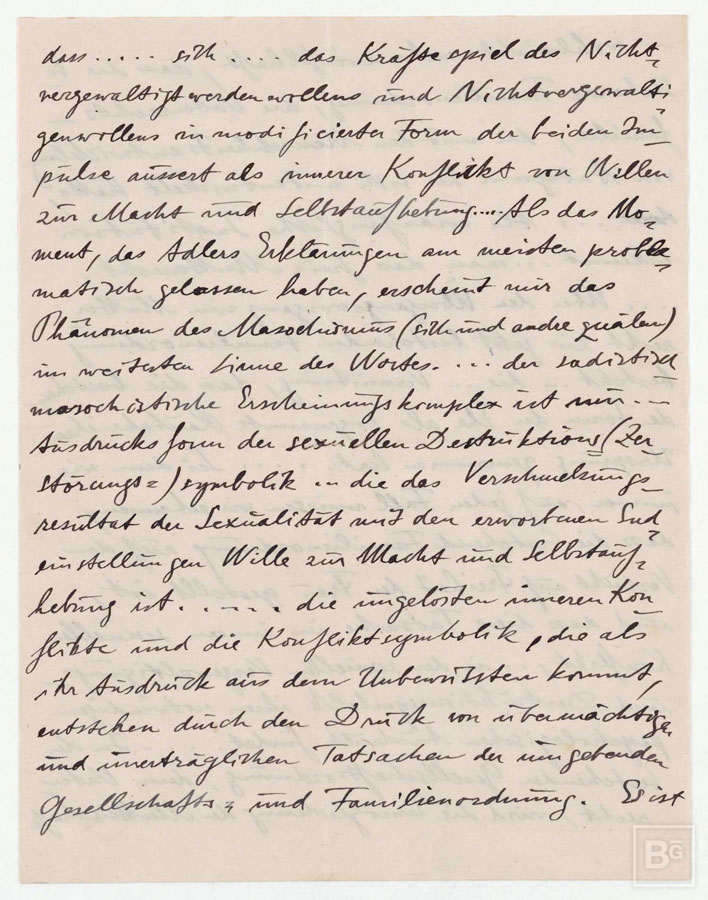 dass ..... sich .... das Kräftespiel des Nicht=
vergewaltigtwerdenwollens und Nichtvergewalti
genwollens in modificierter Form der beiden Im=
pulse äussert als innerer Konflikt von Willen
zur Macht und Selbstaufhebung.... Als das Mo=
ment, das Adlers Erklärungen am meisten proble=
matisch gelassen haben, erscheint mir das
Phänomen des Masochismus (sich und andre quälen)
im weitesten Sinne des Wortes. ... der sadistisch
masochistische Erscheinungskomplex ist nur ...
Ausdrucksform der sexuellen Destruktions (Zer
störungs=) symbolik ... die das Verschmelzungs=
resultat der Sexualität mit den erworbenen End=
einstellungen Wille zur Macht und Selbstauf=
hebung ist. .... die ungelösten inneren Kon
flikte und die Konfliktsymbolik, die als
ihr Ausdruck aus dem Unbewussten kommt,
entstehen durch den Druck von übermächtigen
und unerträglichen Tatsachen der umgebenden
Gesellschafts= und Familienordnung. Es ist
BG